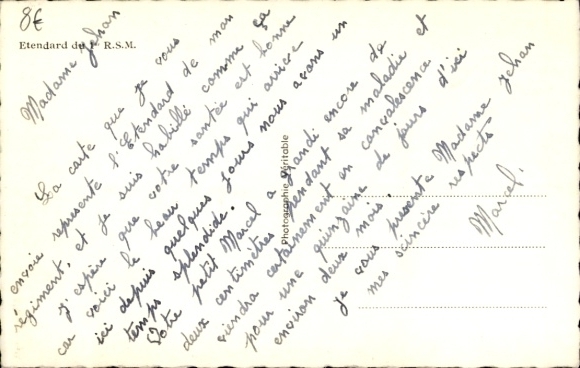 8€
Etendard du 1er R.S.M.
Madame Jehan
La carte que je vous
envoie représente l'Etendard de mon
régiment, et je suis habillé comme ça
J'espère que votre santée est bonne
car voici le beau temps qui arrive
ici depuis quelques jours nous avons un
temps splendide.
Votre petit Marcel a grandi encore de
deux centimètres pendant sa maladie et
viendra certainement en convalescence
pour une quinzaine de jours d'ici
environ deux mois.
Je vous présente Madame Jehan
mes scincère respects
Marcel.
Photographie Véritable